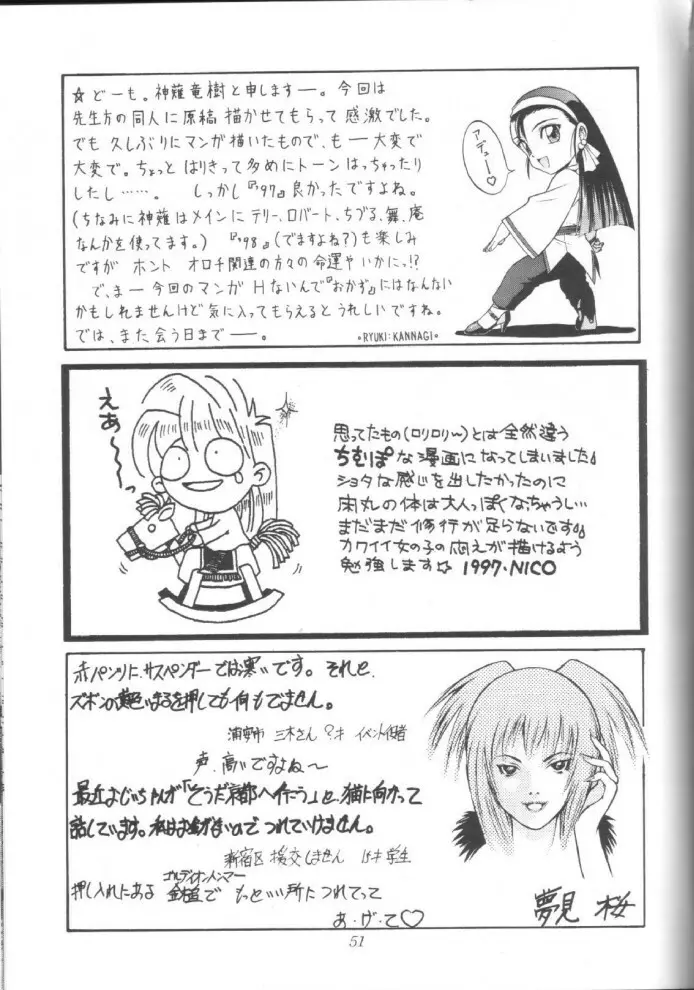 ☆どーも。神薙竜樹と申しますー。今回は
先生方の同人に原稿描かせてもらって感激でした。
でも久しぶりにマンガ描いたもので、もー大変で
大変で。ちょっとはりきって多めにトーンはっちゃたり
したし……。 しっかし『'97』良かったですよね。
(ちなみに神薙はメインにテリー、ロバート、ちづる、舞、庵
なんかを使ってます。) 『'98』(でますよね?)も楽しみ
ですがホントオロチ関連の方々の命運やいかにっ!?
で、まー今回のマンガHないんで『おかず』にはなんない
かもしれませんけど気に入ってもらえるとうれしいですね。
では、また会う日までー。
RYUKI:KANNAGI
アデュー♡
えあ〜〜っ
思ってたもの(ロリロリ〜)とは全然違う
ちむぽな漫画になってしまいました♪
ショタな感じを出したかったのに
床丸の体は大人っぽくなっちゃうし…
まだまだ修行が足らないです
カワイイ女の子の悶えが描けるよう
勉強します☆ 1997.NICO
赤パンツに、サスペンダーでは寒いです。それと、
ズボンの を押しても何もでません。
浦安市 三木さん ?才 イベント
声、高いですよね〜
最近よじいちゃんが「そうだ京都へ行こう」と、猫に向かって
話しています。私はお金がないのでつれていけません。
新宿区 援交しません 学生
押し入れにある 金槌で もっといい所につれてって
あ・げ・て♡
夢見 桜
51